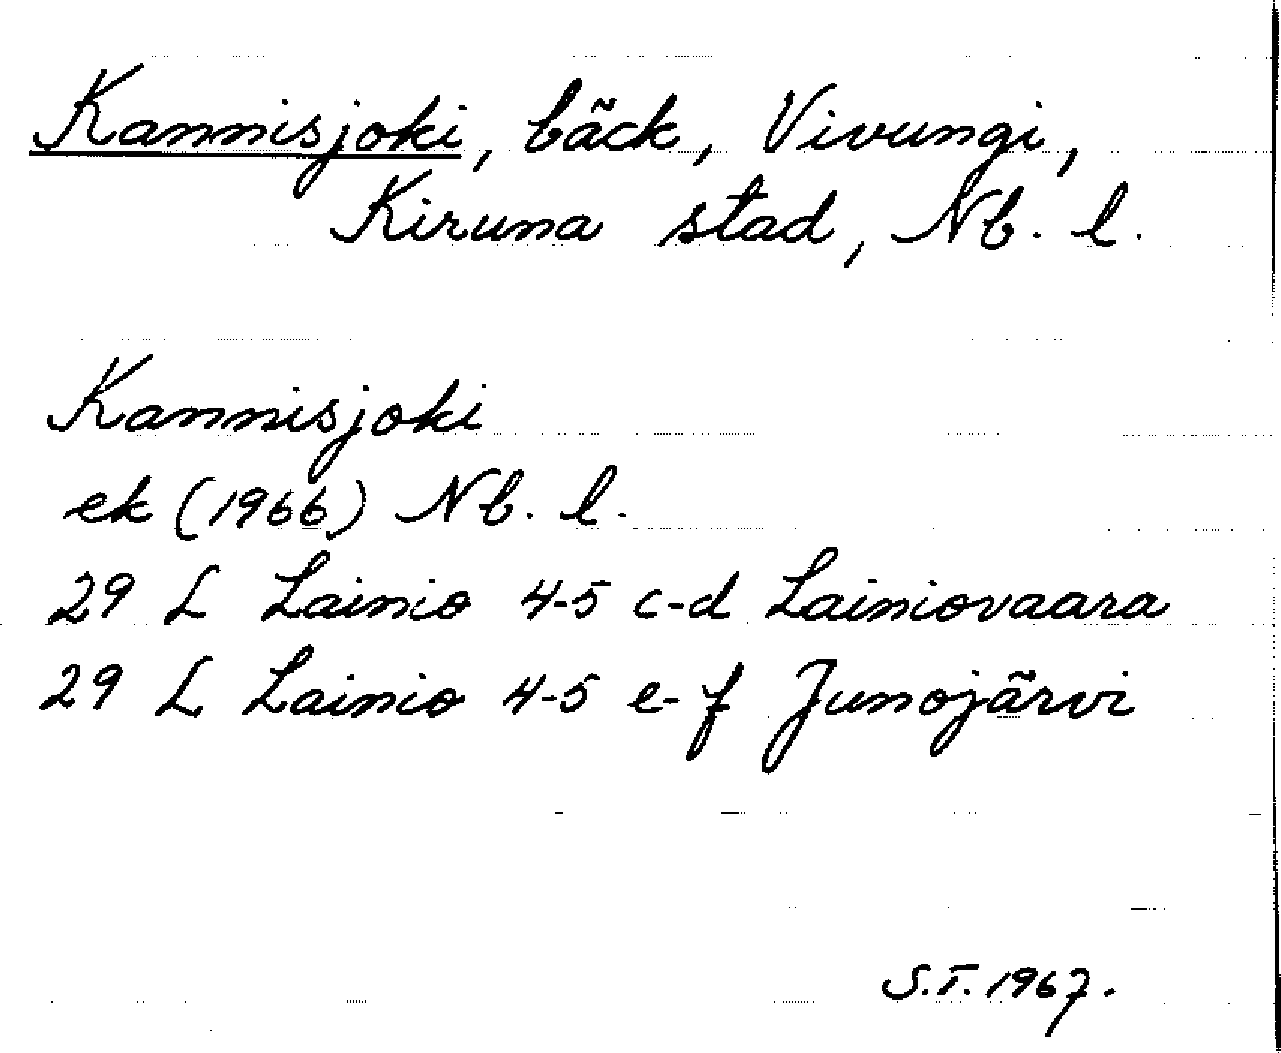 Kannisjoki, bäck, Vivungi,
Kiruna stad, Nb. l.
Kannisjoki
ek (1966) Nb. l.
29 L Lainio 4-5 c-d Lainiovaara
29 L Lainio 4-5 e-f Junojärvi
S.T. 1967.